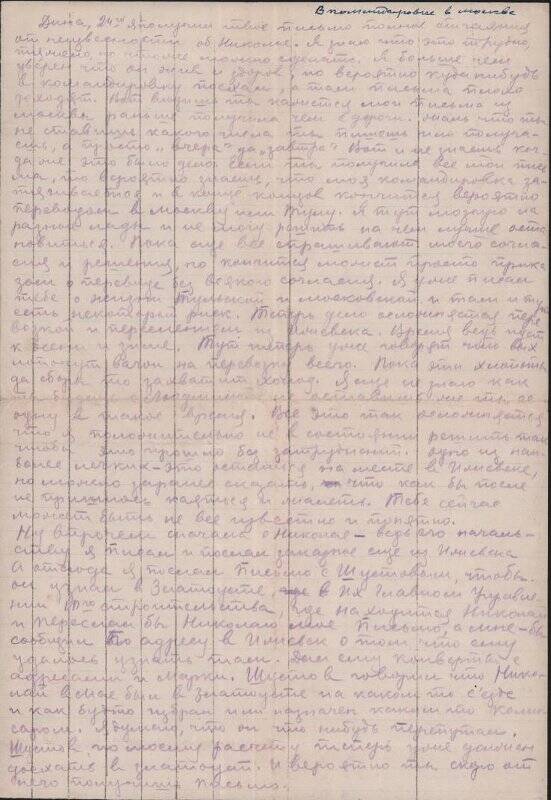 В командировке в Москве
Дина, 24го я получил твое письмо полное отчаяния
от неизвестности об Николае. Я знаю что это трудно,
но что же можно сделать. Я больше чем
уверен что он жив и здоров, но вероятно куда нибудь
в командировку послан, а там письма плохо
доходят. Вот видишь ты кажется мои письма из
Москвы раньше получила чем с дороги. Жаль что ты
не ставишь какого числа ты пишешь или получа-
ешь, а просто "вчера" да "завтра". Вот и не знаешь ког-
да же это было дело. Если ты получила все мои пись
ма, то вероятно знаешь, что моя командировка за-
тягивается и в конце концов кончится вероятно
переводом в Москву или Тулу. Я тут
разные лады и не могу решить на чем лучше оста
новиться. Пока еще все спрашивают моего согла-
сия и решения, но кончится может просто прика
зом о переводе без всякого согласия. Я уже писал
тебе о жизни Тульской и московской и там и тут
есть некоторый риск. Теперь дело осложняется пере
возкой и переселением из Ижевска. Время ведь идет
к осени и зиме. Тут теперь уже говорят что
вагон на перевозку всего. Пока эти хлопоты
да сборы то захватит холод. Я еще не знаю как
оставить мне тебя
одну в такое время. Все это так осложняется
что я положительно не в состоянии решить так
чтобы это прошло без затруднений. Одно из наи-
более легких - это остаться на месте в Ижевске,
но можно заранее сказать, что как бы после
не пришлось каяться и жалеть. Тебе сейчас
может быть не все известно и понятно.
Ну впрочем сначала о Николае - ведь его началь-
ству я писал и послал заказное еще из Ижевска
А отсюда я послал письмо с Шустовым, чтобы
он узнал в Златоусте, в их Главном Управле
нии строительства, где находится Николай
и переслал бы Николаю мое письмо, а мне-бы
сообщил по адресу в Ижевск о том что ему
удалось узнать там. Дал ему конверты с
адресами и марки. Шустов говорил что Нико-
лай в мае был в Златоусте на каком то с'езде
и как будто избран или назначен каким то комис-
саром. Я думаю, что он что нибудь перепутал.
Шустов по моему расчету теперь уже должен
доехать в Златоуст. И вероятно ты скоро от
него получишь письмо.